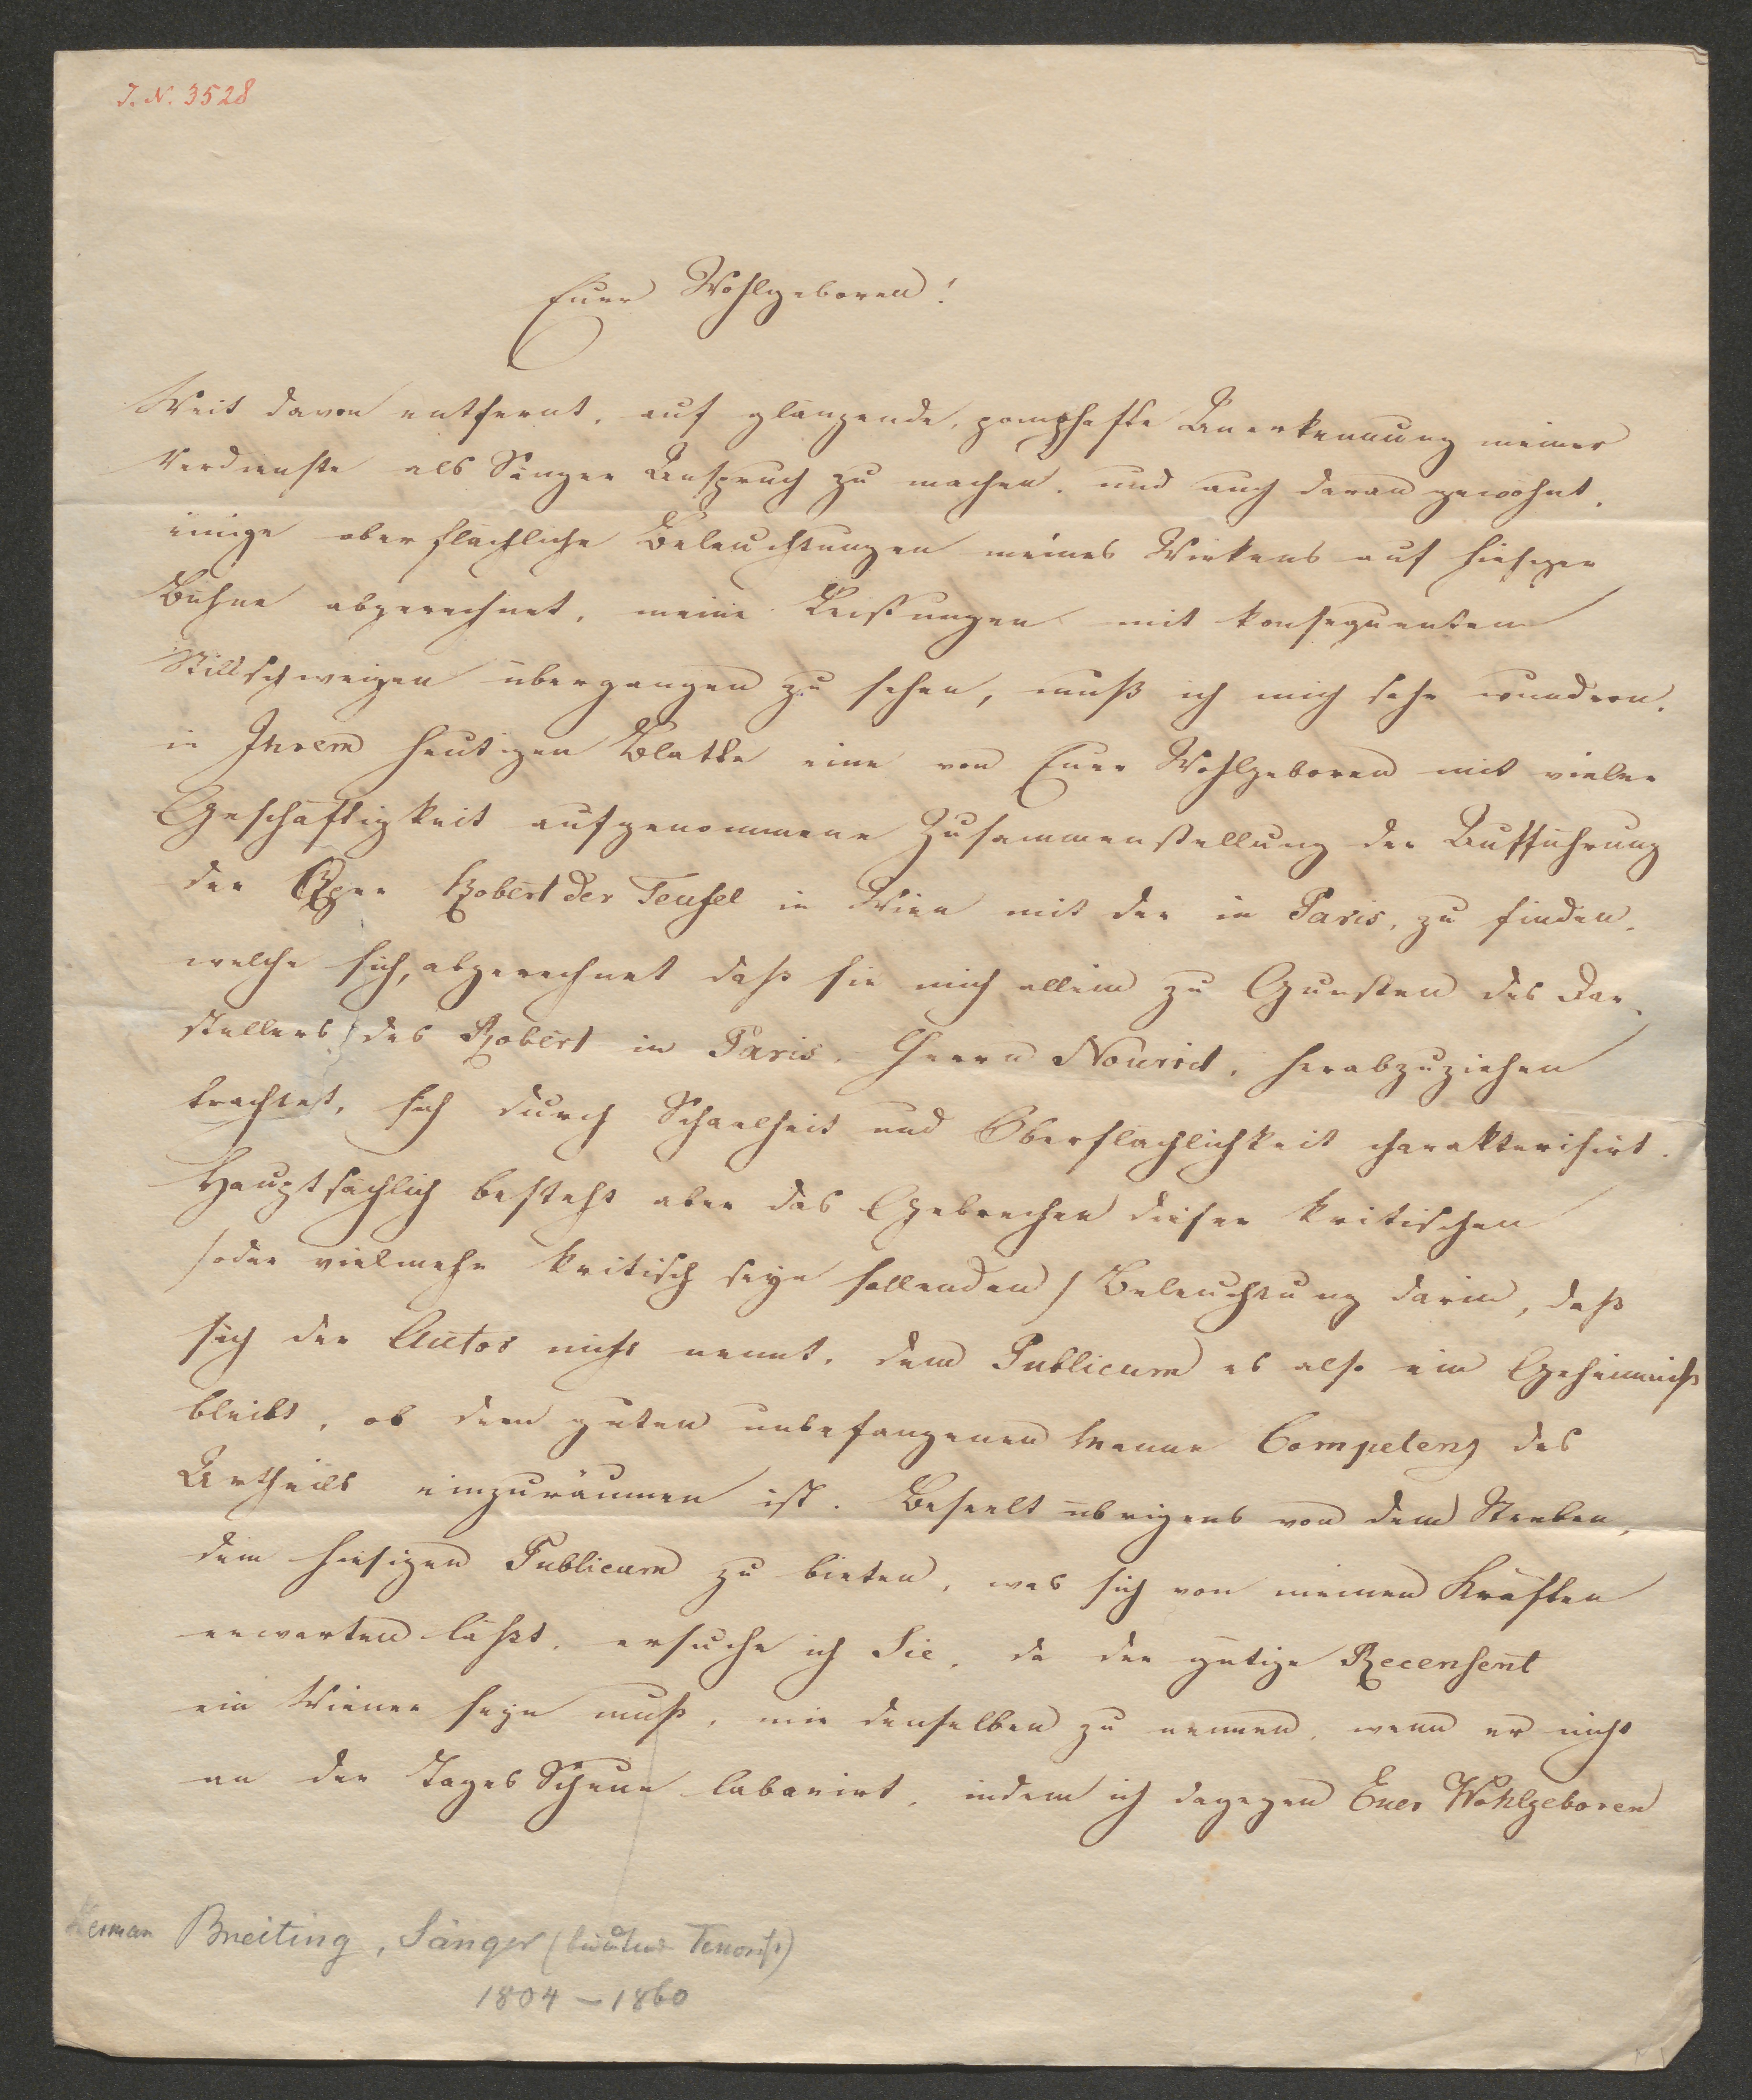 J. N. 3528
Euer Wohlgeboren!
Weit davon entfernt, auf glänzende, pomphafte Anerkennung meiner
Verdienste als Sänger Anspruch zu machen, und auch daran gewöhnt,
einige oberflächliche Beleuchtungen meines Wirkens auf hiesiger
Bühne abgerechnet, meine Leistungen mit konsequentem
Stillschweigen übergangen zu sehen, muß ich mich sehr wundern,
in Ihrem heutigen Blatte eine von Euer Wohlgeboren mit vieler
Geschäftigkeit aufgenommene Zusammenstellung der Aufführung
der Oper Robert der Teufel in Wien mit der in Paris, zu finden,
welche sich, abgerechnet daß sie mich allein zu Gunsten des Dar-
stellers des Robert in Paris, Herrn Nourrit, herabzuziehen
trachtet, sich durch Schaalheit und Oberflächlichkeit charakterisirt.
Hauptsächlich besteht aber das Gebrechen dieser kritischen
/oder vielmehr kritisch seyn sollenden/ Beleuchtung darin, daß
sich der Autor nicht nennt, dem Publicum es also ein Geheimniß
bleibt, ob dem guten unbefangenen Manne Competenz des
Urtheils einzuräumen ist. Beseelt übrigens von dem Streben,
dem hiesigen Publicum zu bieten, was sich von meinen Kräften
erwarten läßt, ersuche ich Sie, da der gütige Recensent
ein Wiener seyn muß, mir denselben zu nennen, wenn er nicht
an der Tages Scheue laborirt, indem ich dagegen Euer Wohlgeboren
Herman Breiting, Sänger (Tenorist)
1804 – 1860